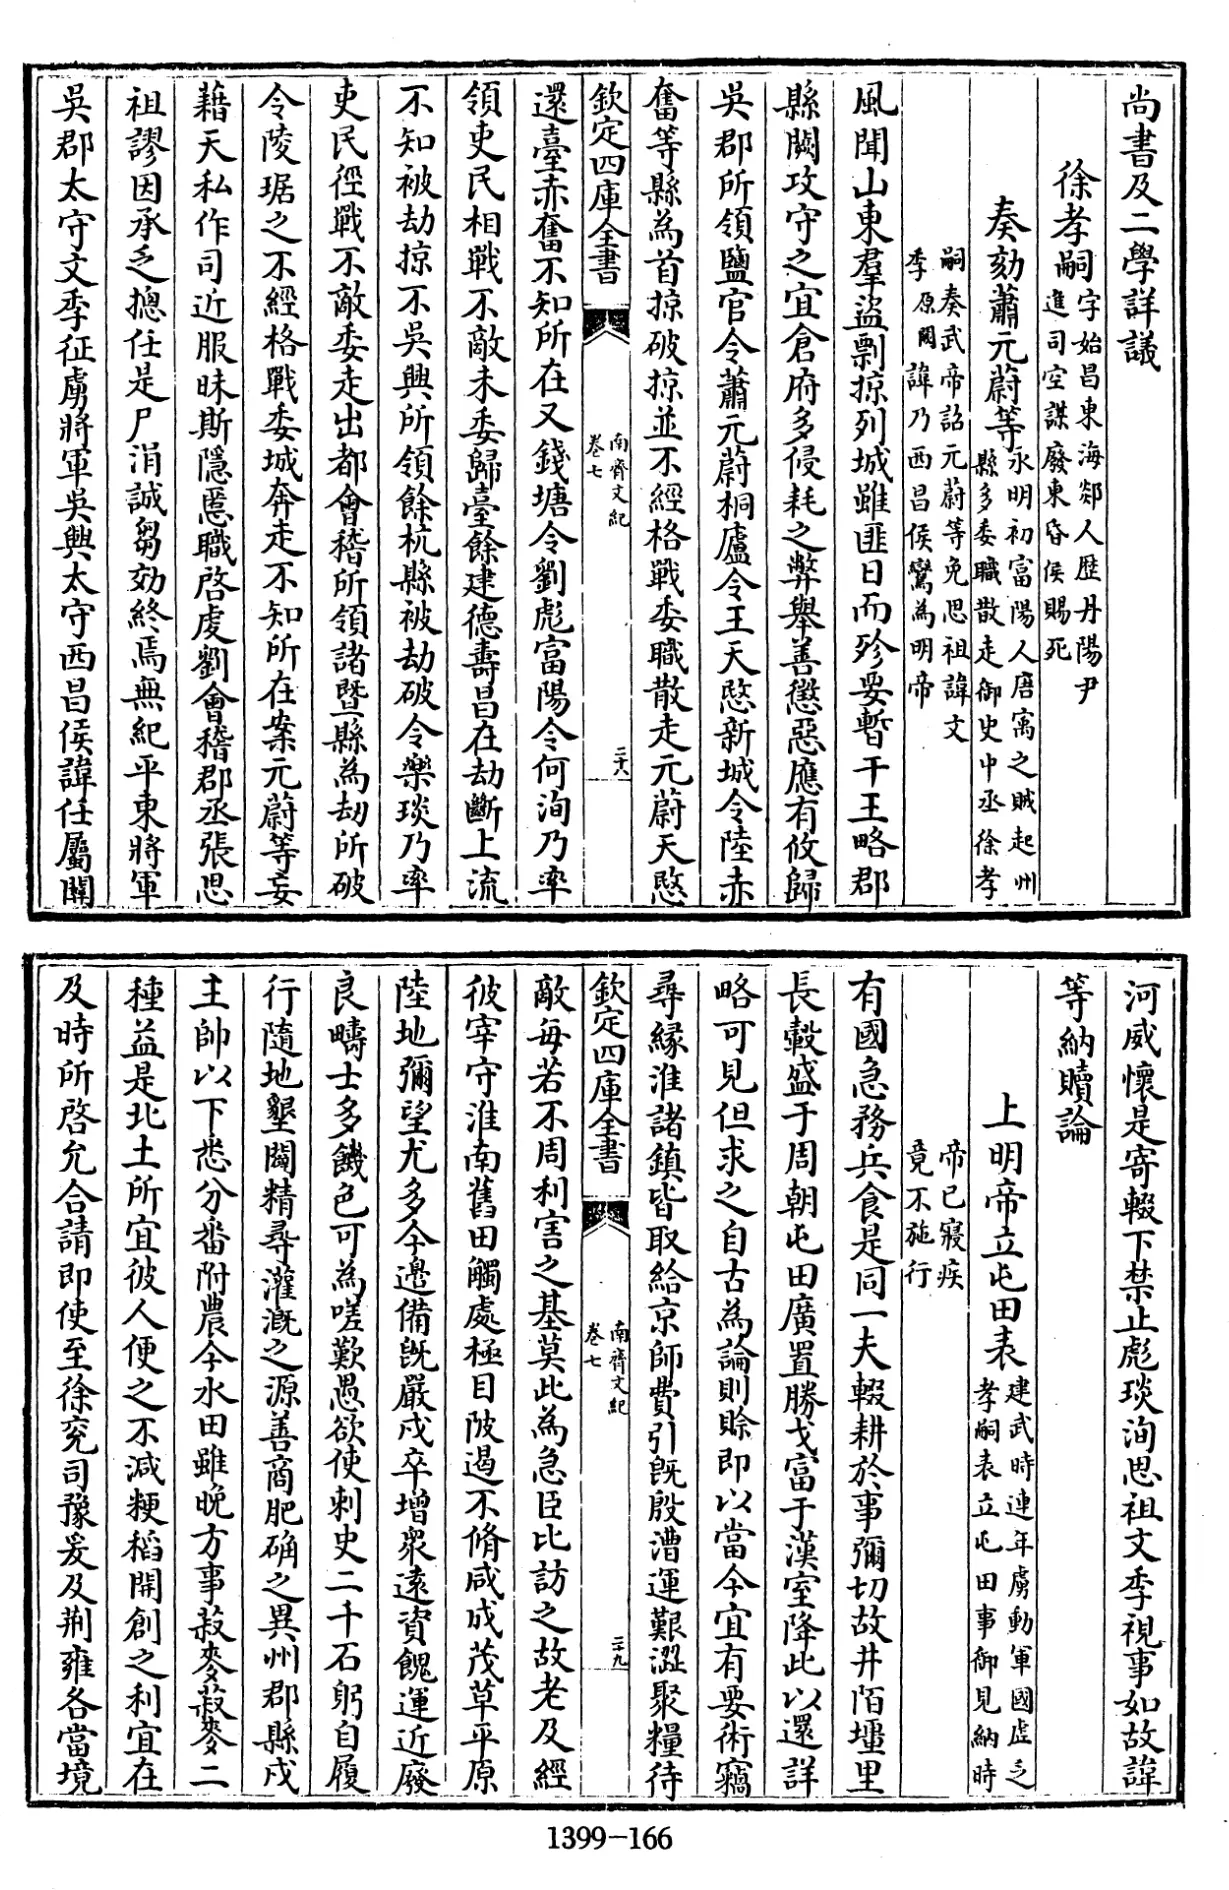 尚書及二學詳議
徐孝嗣字始昌東海郯人歷丹陽尹
進司空謀廢東昏侯賜死
奏劾蕭元蔚等永明初富陽人唐寓之賊起州
縣多委職散走御史中丞徐孝
嗣奏武帝詔元蔚等免思祖諱文
季原闕諱乃西昌侯鸞為明帝
風聞山東羣盜剽掠列城雖匪日而殄要暫干王略郡
縣闕攻守之宜倉府多侵耗之弊舉善懲惡應有攸歸
吳郡所領鹽官令蕭元蔚桐廬令王天愍新城令陸赤
奮等縣為首掠破掠並不經格戰委職散走元蔚天愍
欽定四庫全書
南齊文紀
卷七
二十八
還臺赤奮不知所在又錢塘令劉彪富陽令何洵乃率
領吏民相戰不敵未委歸臺餘建德壽昌在劫斷上流
不知被劫掠不吳興所領餘杭縣被劫破令樂琰乃率
吏民徑戰不敵委走出都會稽所領諸暨縣為劫所破
令陵琚之不經格戰委城奔走不知所在案元蔚等妄
藉天私作司近服昧斯隱慝職啓虔劉會稽郡丞張思
祖謬因承乏摠任是尸涓誠芻効終焉無紀平東將軍
吳郡太守文季征虜將軍吳興太守西昌侯諱任屬關
河威懷是寄輟下禁止彪琰洵思祖文季視事如故諱
等納贖論
上明帝立屯田表建武時連年虜動軍國虛乏
孝嗣表立屯田事御見納時
帝已寢疾
竟不施行
有國急務兵食是同一夫輟耕於事彌切故井陌壃里
長轂盛于周朝屯田廣置勝戈富于漢室降此以還詳
略可見但求之自古為論則賒即以當今宜有要術竊
尋緣淮諸鎮皆取給京師費引既殷漕運艱澀聚糧待
欽定四庫全書
南齊文紀
卷七
二十九
敵每若不周利害之基莫此為急臣比訪之故老及經
彼宰守淮南舊田觸處極目陂遏不脩咸成茂草平原
陸地彌望尤多今邊備既嚴戍卒增衆遠資餽運近廢
良疇士多饑色可為嗟歎愚欲使刺史二千石躬自履
行隨地墾闢精尋灌溉之源善商肥确之異州郡縣戍
主帥以下悉分番附農今水田雖晚方事菽麥菽麥二
種益是北土所宜彼人便之不減粳稻開創之利宜在
及時所啓允合請即使至徐兗司豫爰及荊雍各當境
1399-166